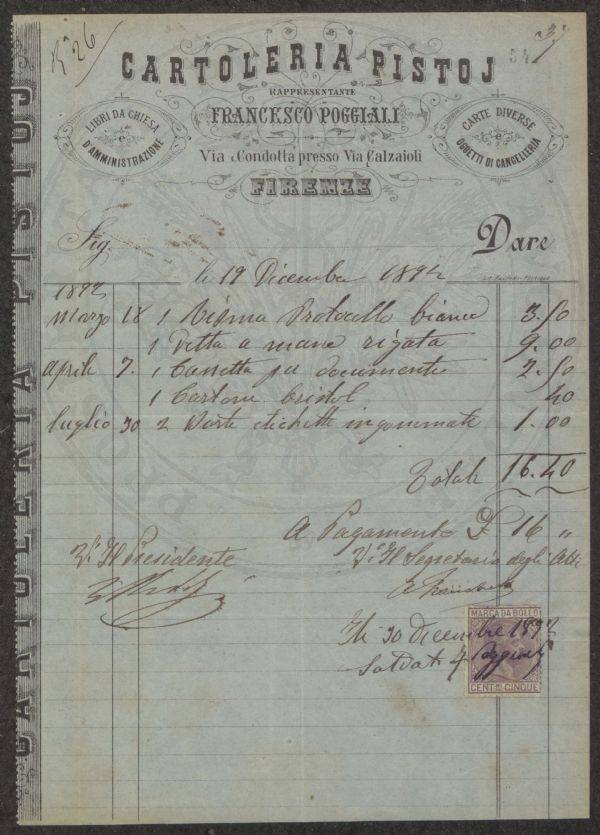 R° 26
CARTOLERIA PISTOJ
RAPPRESENTANTE
FRANCESCO POGGIALI
LIBRI DA CHIESA
E
D'AMMINISTRAZIONE
CARTE DIVERSE
E
OGGETTI DI CANCELLERIA
Via Condotta presso Via Calzaioli
FIRENZE
Sig. Dare
li 19 Dicembre 1892
1892
Marzo 18 1 Risma Protocollo bianca 3.50
1 Detta a mano rigata 9.00
Aprile 7. 1 Cassetta per documenti 2.50
1 Cartone bristol 40
Luglio 30 2 Buste etichette ingommate 1.00
Totale 16.40
A Pagamento £ 16 "
V° Il Presidente
V° Il Segretario degli Atti
MARCA DA BOLLO
Li 30 dicembre 1892
Saldato F Poggiali
CENT.MI CINQUE
CARTOLERIA PISTOJ